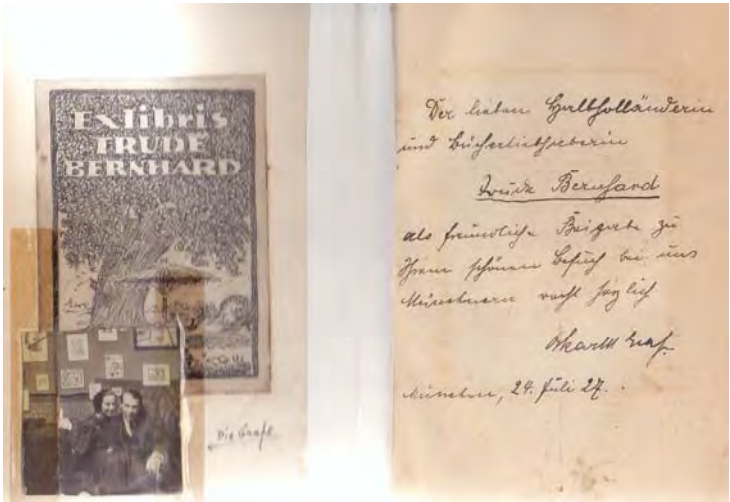 Exlibris
TRUDE
BERNHARD
Die Grafs
Der lieben Halbholländerin
und Bücherliebhaberin
Trude Bernhard
als freundliche Beigabe zu
Ihrem schönen Besuch bei uns
Münchnern recht herzlich
Oskar M Graf.
München, 24. Juli 27.